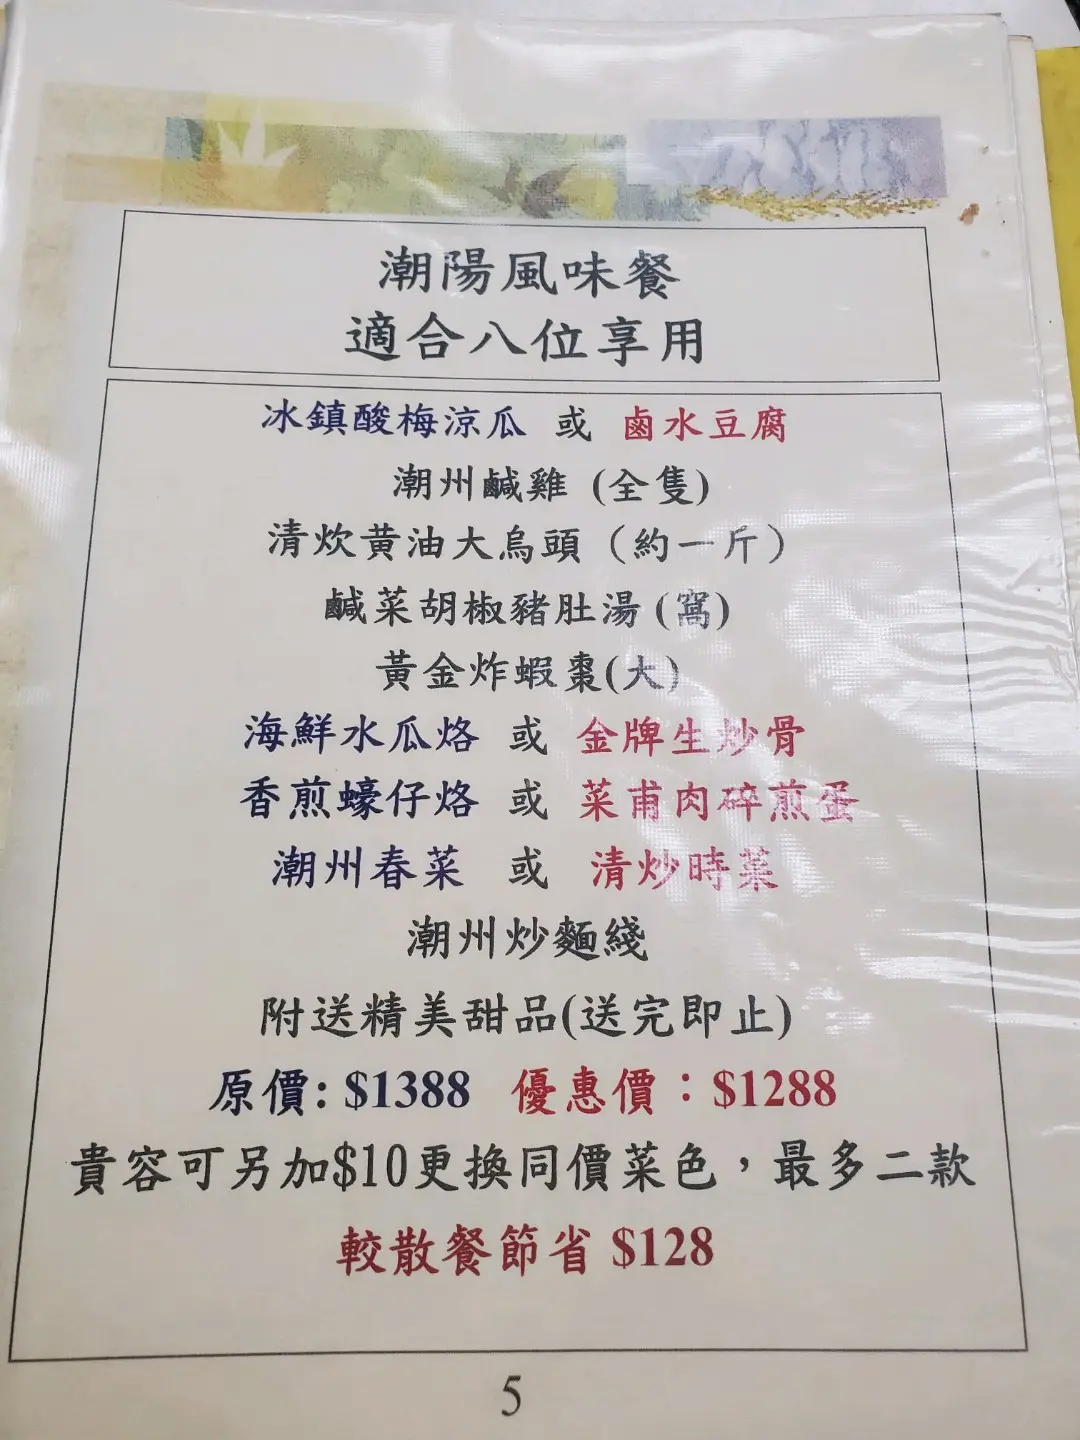 潮陽風味餐
適合八位享用
冰鎮酸梅涼瓜 或 鹵水豆腐
潮州鹹雞 (全隻)
清炊黃油大烏頭 (約一斤)
鹹菜胡椒豬肚湯 (窩)
黃金炸蝦棗(大)
海鮮水瓜烙 或 金牌生炒骨
香煎蠔仔烙 或 菜甫肉碎煎蛋
潮州春菜 或 清炒時菜
潮州炒麵綫
附送精美甜品(送完即止)
原價: $1388 優惠價：$1288
貴容可另加$10更換同價菜色，最多二款
較散餐節省 $128
5